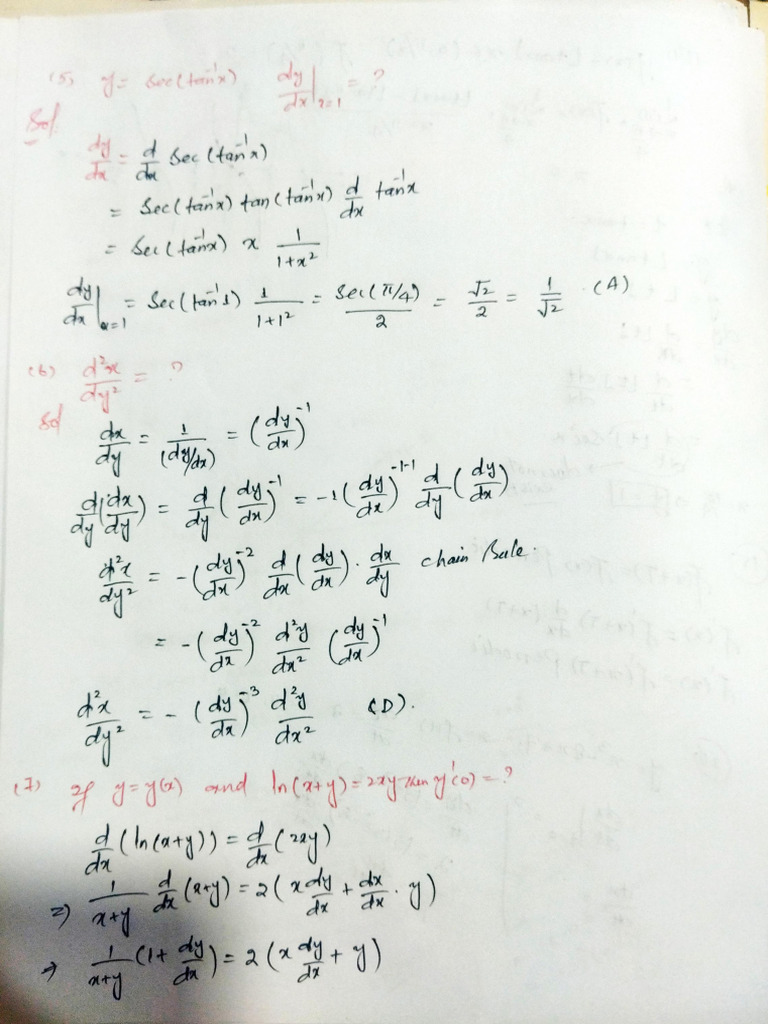 (5) y = sec(tan⁻¹x) dy/dx|ₓ₌₁ = ?
Sol.
dy/dx = d/dx sec(tan⁻¹x)
= sec(tan⁻¹x) tan(tan⁻¹x) d/dx tan⁻¹x
= sec(tan⁻¹x) x 1/(1+x²)
dy/dx|ₓ₌₁ = sec(tan⁻¹1) 1/(1+1²) = sec(π/4)/2 = √2/2 = 1/√2 . (A)
(6) d²x/dy² = ?
Sol
dx/dy = 1/(dy/dx) = (dy/dx)⁻¹
d/dy(dx/dy) = d/dy (dy/dx)⁻¹ = -1 (dy/dx)⁻¹⁻¹ d/dy (dy/dx)
d²x/dy² = -(dy/dx)⁻² d/dx (dy/dx) · dx/dy chain Rule.
= -(dy/dx)⁻² d²y/dx² (dy/dx)⁻¹
d²x/dy² = - (dy/dx)⁻³ d²y/dx² (D).
(7) If y = y(x) and ln(x+y) = 2xy then y'(0) = ?
d/dx (ln(x+y)) = d/dx (2xy)
⇒ 1/(x+y) d/dx (x+y) = 2 (x dy/dx + dx/dx · y)
⇒ 1/(x+y) (1 + dy/dx) = 2 (x dy/dx + y)